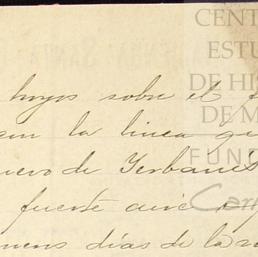 CENT
ESTU
DE HIS
DE M
FUND
Car
hoyos sobre el
la linea
uevo de Yerbanis
fuerte aire
mens días de la